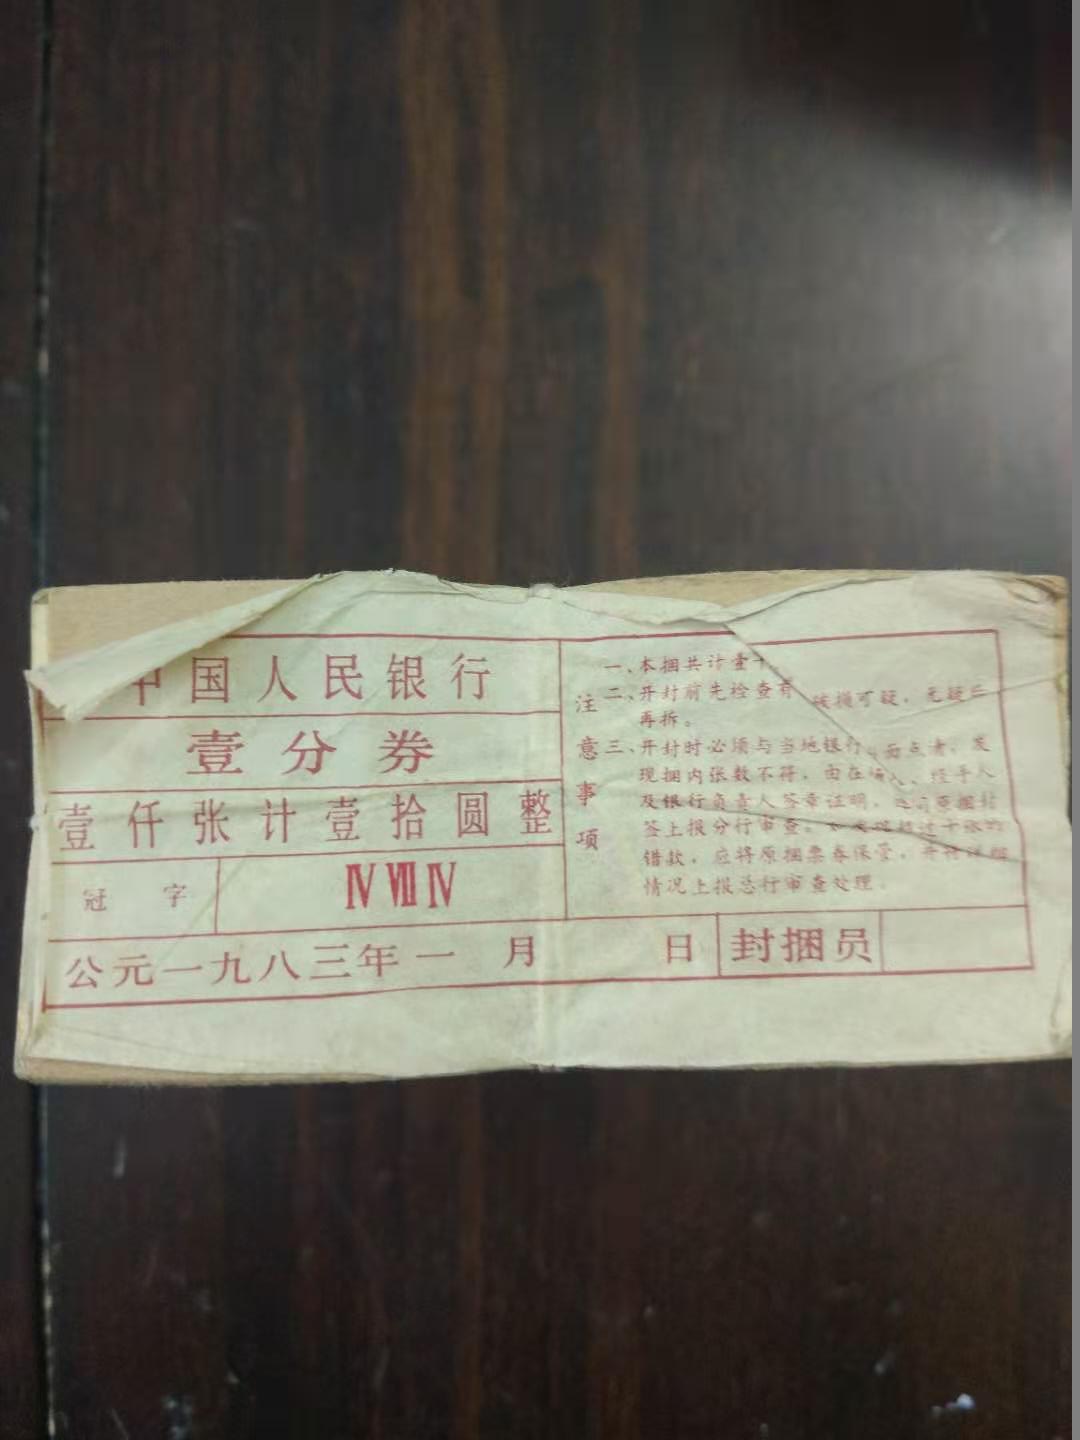 中国人民银行
壹分券
壹仟张计壹拾圆整
冠字 ⅣⅧⅣ
公元一九八三年一月 日 封捆员
注意事项
一、本捆共计壹千
二、开封前先检查有 破损可疑，无疑后
再拆。
三、开封时必须与当地银行 面点清，发
现捆内张数不符，由在场人、经手人
及银行负责人签章证明，连同原捆封
签上报分行审查。如发现超过十张的
错款，应将原捆票券保管，并将详细
情况上报总行审查处理。